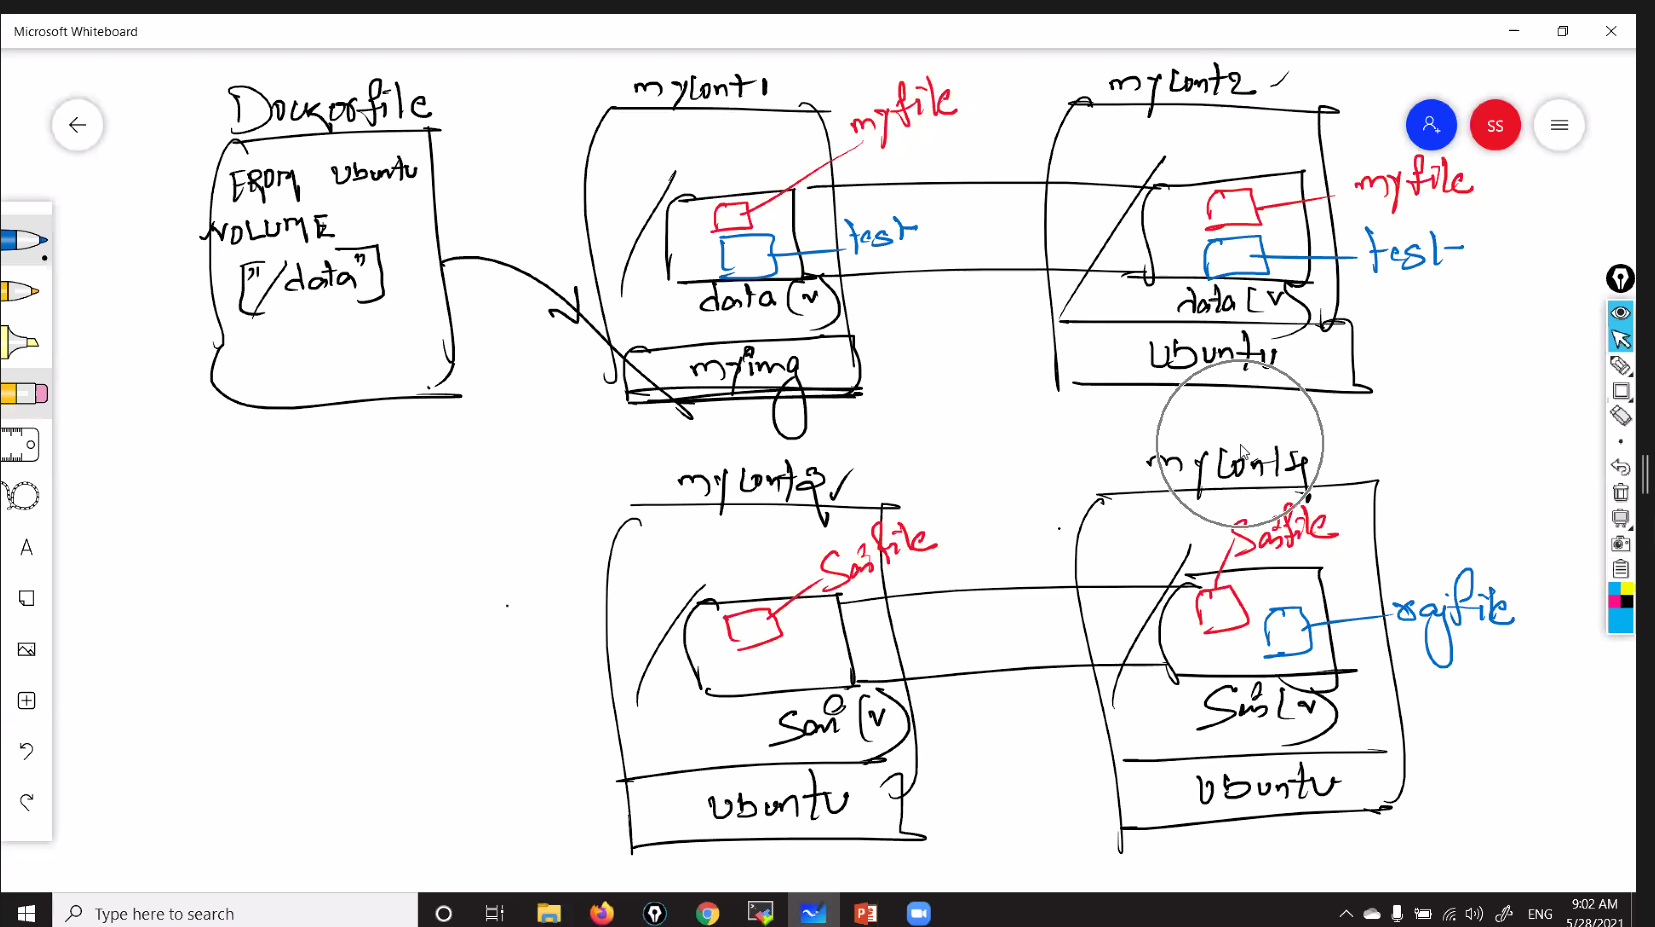 Microsoft Whiteboard
Dockerfile
FROM Ubuntu
VOLUME
["/data"]
mycont1
myfile
test
data (v
myimg
mycont2
myfile
test
data (v
Ubuntu
mycont3
Saifile
Sai (v
Ubuntu
mycont4
Saifile
rajfile
Sai (v
Ubuntu
SS
A
Type here to search
ENG
9:02 AM
5/28/2021